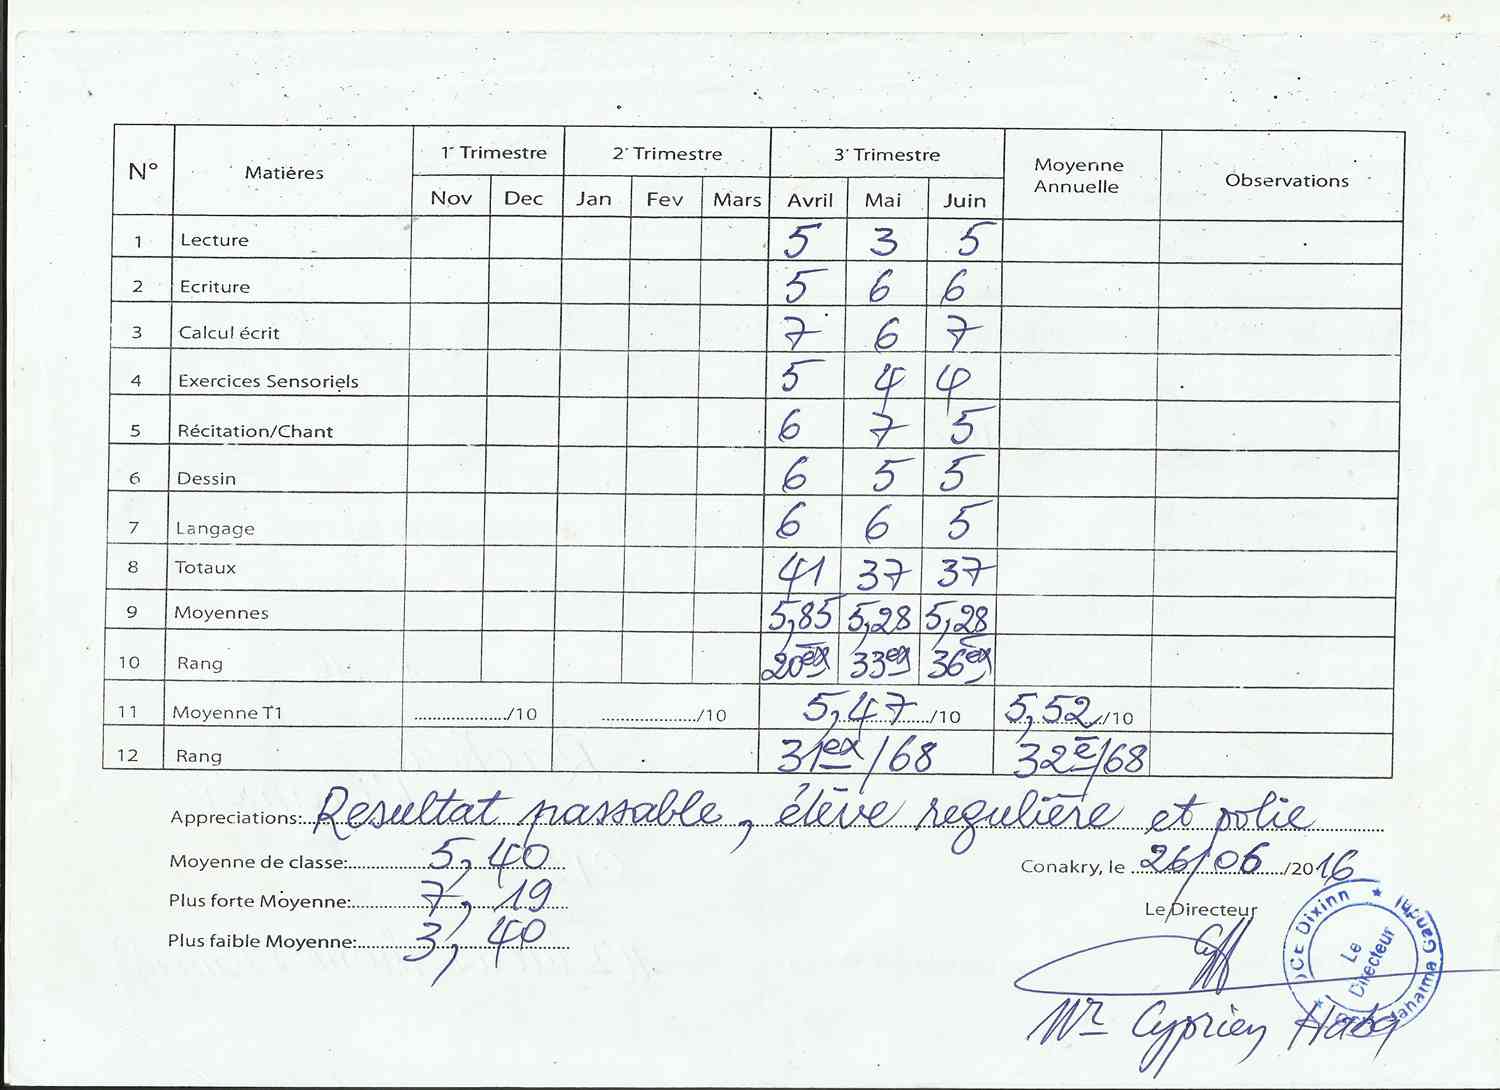 N° Matières 1er Trimestre 2e Trimestre 3e Trimestre Moyenne Annuelle Observations
Nov Dec Jan Fev Mars Avril Mai Juin
1 Lecture 5 3 5
2 Ecriture 5 6 6
3 Calcul écrit 7 6 7
4 Exercices Sensoriels 5 4 4
5 Récitation/Chant 6 7 5
6 Dessin 6 5 5
7 Langage 6 6 5
8 Totaux 41 37 37
9 Moyennes 5,85 5,28 5,28
10 Rang 20ex 33ex 36ex
11 Moyenne T1 ..................../10 ..................../10 5,47/10 5,52/10
12 Rang 31ex/68 32e/68
Appreciations: Resultat passable, élève regulière et polie
Moyenne de classe: 5,40
Conakry, le 26/06/2016
Plus forte Moyenne: 7,19
Le Directeur
Plus faible Moyenne: 3,40
DCE Dixinn
Le Directeur
Mr Cyprien Haba